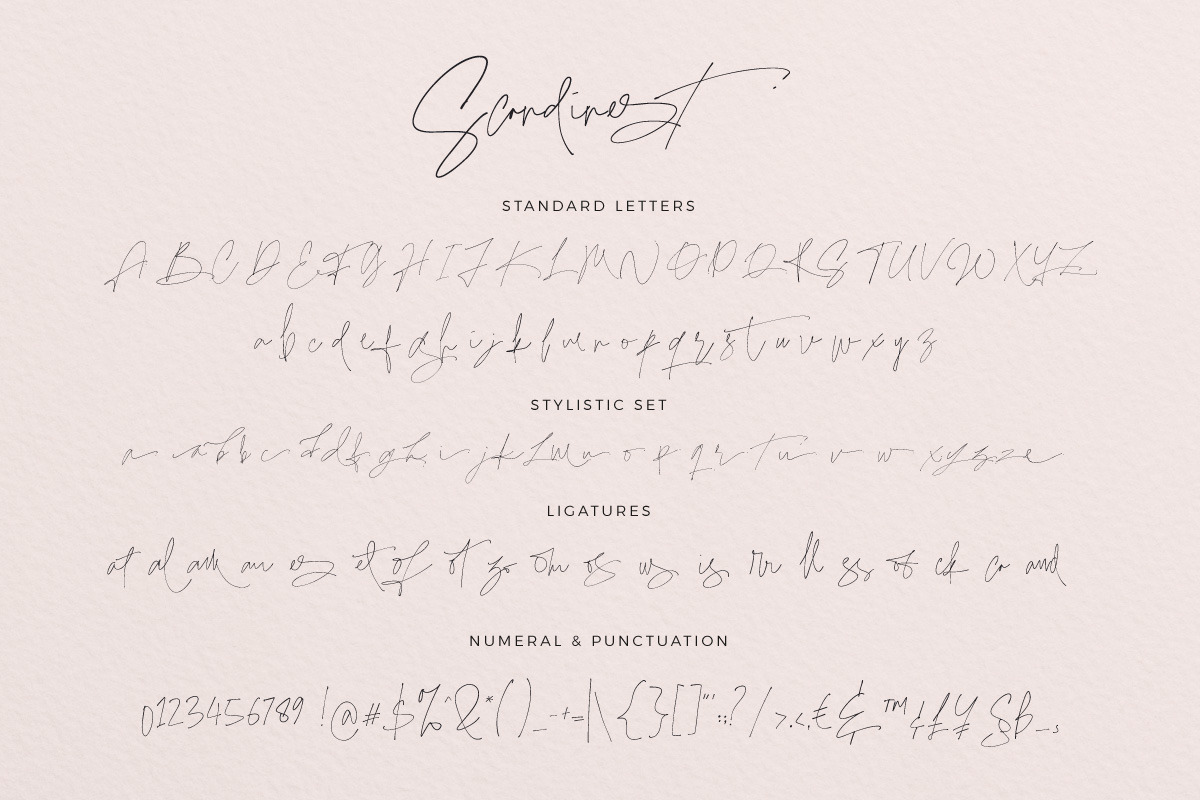 Scandinest
STANDARD LETTERS
A B C D E F G H I J K L M N O P Q R S T U V W X Y Z
a b c d e f g h i j k l m n o p q r s t u v w x y z
STYLISTIC SET
LIGATURES
at al am an es et of ot zo om os us is rr ll ss of ck co and
NUMERAL & PUNCTUATION
0123456789 !@#$%^&*()_-+=|\{}[]"':;?/>.<,